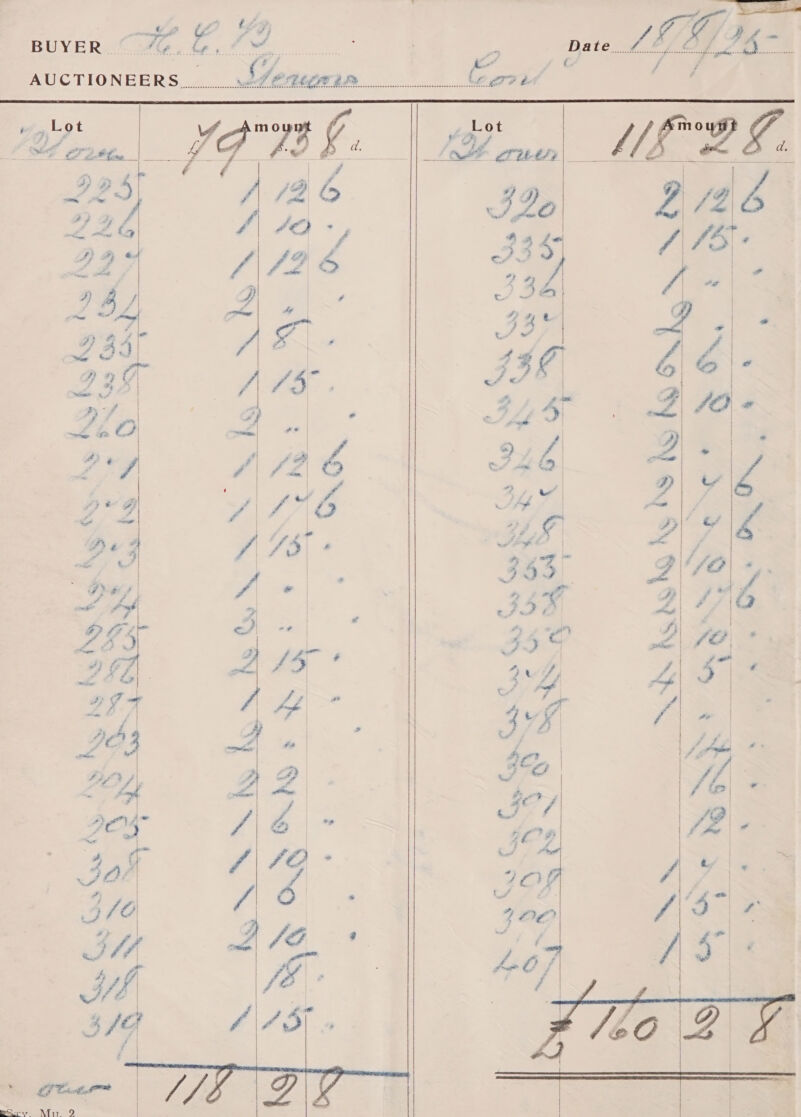 BUYER H. C. B Date 18/8/25
AUCTIONEERS Stevens Cont
Lot Amount
Bt over £ 79 s. 13 8 d.
225 1 12 6
226 1 10 .
227 1 12 6
234 2 " .
235 1 8 .
238 1 15 .
260 2 " .
271 1 12 6
272 1 17 6
273 1 15 .
274 1 . .
285 3 " .
286 2 15 .
287 1 4 "
293 2 " .
294 2 2 .
295 1 6 "
308 1 10 .
310 1 6 .
311 2 10 .
318 18 .
319 1 15 "
over 118 2 8
Sty. Mu. 2
Lot Amount
Bt over £ 118 s. 2 8 d.
320 2 12 6
335 1 15 .
336 1 " .
337 2 . .
338 6 6 .
345 2 10 .
346 2 . .
347 2 7 6
348 2 7 6
353 2 10 .
358 2 17 6
359 2 10 .
374 4 5 .
378 1 " .
390 14 "
391 16 .
392 12 .
398 1 7 .
399 1 5 .
407 1 5 .
£ 160 2 8